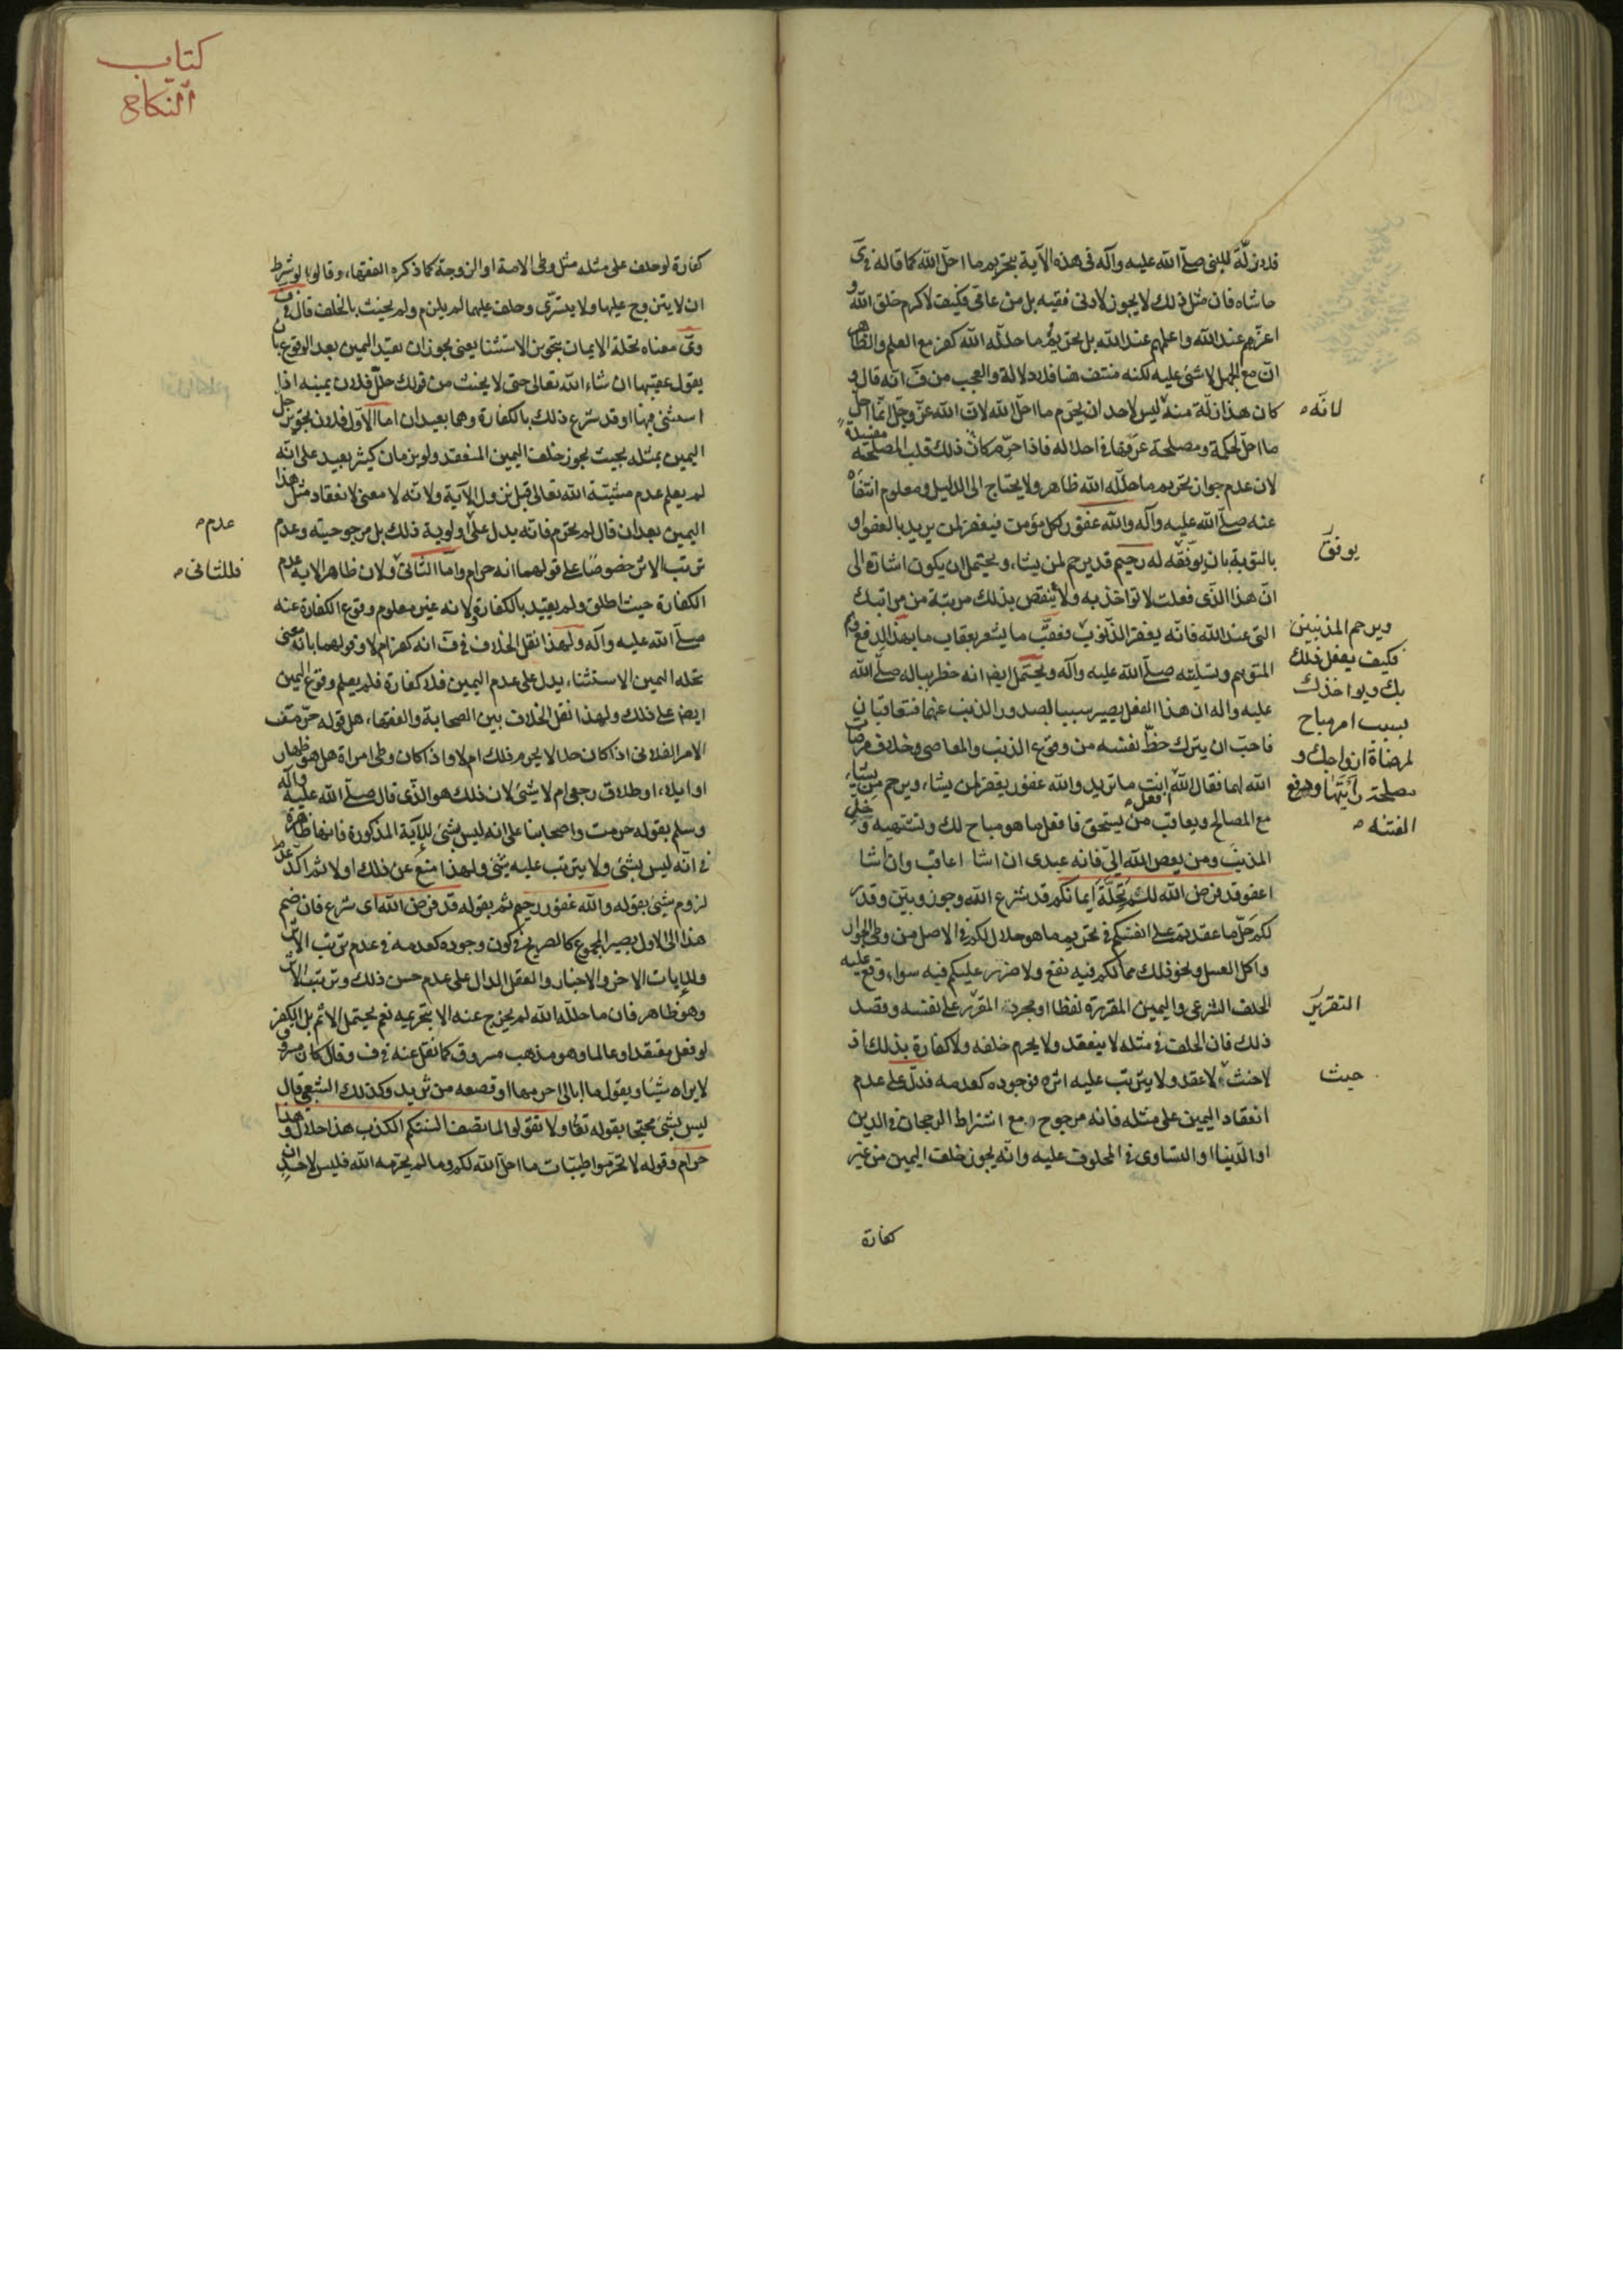 فلا زلّة للنبى صلّى الله عليه وآله فى هذه الآية بتحريم ما احلّ الله كما قاله فى ى
حاشاه فان مثل ذلك لا يجوز لادنى فقيه بل من عاقى فكيف لاكرم خلق الله و
اعزهم عند الله واعلمهم عند الله بل تحريم ما حلله الله كفر مع العلم والظاهر
انّ مع الجهل لا شئ عليه لكنه منتف هنا فلا دلالة والعجب من ف انه قال و
كان هذا زلّة منه ليس لاحد ان يحرّم ما احلّ الله لانّ الله عزّ وجلّ انّما احلّ
لانّه
ما احل لحكمة ومصلحة عرفها فى احلاله فاذا حرّم كان ذلك قلب المصلحة مفسدة
لان عدم جواز تحريم ما حلله الله ظاهر ولا يحتاج الى الدليل ومعلوم انتفاه
عنه صلّى الله عليه وآله والله غفور لكل مؤمن فيغفر لمن يريد بالعفو او
بالتوبة بان يوفقه له رحيم قد يرحم لمن يشاء ويحتمل ان يكون اشارة الى
يوفق
انّ هذا الذّى فعلت لا تؤاخذ به ولا ينقص بذلك مرتبة من مراتبك
التى عند الله فانّه يغفر الذّنوب فعقّب ما يشعر بعقاب ما بهذا لدفع
ويرحم المذنبين
فكيف يفعل ذلك
بك ويواخذك
بسبب امر مباح
لمرضاة ازواجك و
مصلحة رأيتها ودفع
الفتنه
المتوهم وتسليته صلّى الله عليه وآله ويحتمل ايضا انه خطر بباله صلّى الله
عليه واله ان هذا الفعل يصير سببا لصدور الذنب عنهما فتعاقبان
فاحبّ ان يترك حظّ نفسه من وقوع الذنب والمعاصى وخلاف مرضات
الله لهما فقال الله انت ما تريد والله غفور يغفر لمن يشاء ويرحم من يشاء
مع المصالح ويعاقب من يستحق فافعل ما هو مباح لك وتشتهيه و خلّ
المذنب ومن يعص الله الىّ فانه عبدى ان اشا اعاقب وان اشا
اعفو قد فرض الله لكم تحلّة ايمانكم قد شرع الله وجوز وبيّن وقدّر
لكم حلّ ما عقدتم على انفسكم فى تحريم ما هو حلال لكم فى الاصل من وطى الجوار
واكل العسل ونحو ذلك مما لكم فيه نفع ولا ضرر عليكم فيه سواء وقع عليه
الحلف الشرعى واليمين المقررة لفظا او مجرد المقرّر على نفسه وقصد
التقرير
ذلك فان الحلف فى مثله لا ينعقد ولا يحرم خلفه ولا كفارة بذلك اذ
لا حنث لا عقد ولا يترتب عليه اثره فوجوده كعدمه فدلّ على عدم
حيث
انعقاد اليمين على مثله فانه مرجوح مع اشتراط الرجحان فى الدين
او الدّنيا او التساوى فى المحلوف عليه وانّه يجوز خلف اليمين من غير
كفارة
كتاب
النّكاح
كفارة لو حلف على مثله مثل وطى الامة او الزوجة كما ذكره الفقهاء وقالوا لو شرط
ان لا يتزوج عليها ولا يتسرّى وحلف عليهما لم يلزم ولم يحنث بالخلف قال فى ف
وى معناه تحلة الايمان تجويز الاستثنا يعنى يجوز ان يقيد اليمين بعد الوقوع بان
يقول عقيبها ان شاء الله تعالى حتى لا يحنث من قولك حلّل فلان يمينه اذا
استثنى فيها او قد شرع ذلك بالكفارة وهما بعيدان اما الاوّل فلان تجويز حل
اليمين بمثله بحيث يجوز خلف اليمين المنعقد ولو بزمان كثير بعيد على انّه
لم يعلم عدم مشيّة الله تعالى قبل نزول الآية ولانّه لا معنى لانعقاد مثل هذا
اليمين بعد ان قال لم تحرّم فانّه يدل على اولوية ذلك بل مرجوحيته وعدم
عدم
ترتب الاثر خصوصًا على قولهما انه حرام وامّا الثانى ولان ظاهر الاية عدم
فللثانى
الكفارة حيث اطلق ولم يقيّد بالكفارة ولانه غير معلوم وقوع الكفارة عنه
صلّى الله عليه وآله ولهذا نقل الخلاف فى ف انه كفر ام لا وقولهما بانّه معنى
تحله اليمين الاستثناء يدل على عدم اليمين فلا كفارة فلم يعلم وقوع اليمين
ايضا على ذلك ولهذا نقل الخلاف بين الصحابة والفقهاء هل قوله حرّمت
الامر الفلانى اذا كان حلالا يحرم ذلك ام لا واذا كان وطى امراة هل هو ظهار
او ايلاء او طلاق رجعى ام لا شئ لان ذلك هو الذّى قال صلّى الله عليه وآله
وسلم بقوله حرمت واصحابنا على انه ليس بشئ للآية المذكورة فانها ظاهرة
فى انّه ليس بشئ ولا يترتب عليه شئ ولهذا منع عن ذلك اولا ثم اكّد عدم
لزوم شئ بقوله والله غفور رحيم ثم بقوله قد فرض الله اى شرع فان ضم
هذا الى الاول يصير المجموع كالصريح فى كون وجوده كعدمه فى عدم ترتب الاثر
وللايات الاخر والاخبار والعقل الدال على عدم حسن ذلك وترتب الاثر
وهو ظاهر فان ما حلله الله لم يخرج عنه الا بتحريمه نعم يحتمل الاثم بل الكفر
لو فعل معتقدا وعالما وهو مذهب مسروق كما نقل عنه فى ف وقال كان مسروق
لا يراه شيئا ويقول ما ابالى احرمها او قصعه من ثريد وكذلك الشعبى قال
ليس بشئ محتجا بقوله تعالى ولا تقولوا لما تصف السنتكم الكذب هذا حلال وهذا
حرام وقوله لا تحرّموا طيّبات ما احلّ الله لكم وما لم يحرّمه الله فليس لاحد ان